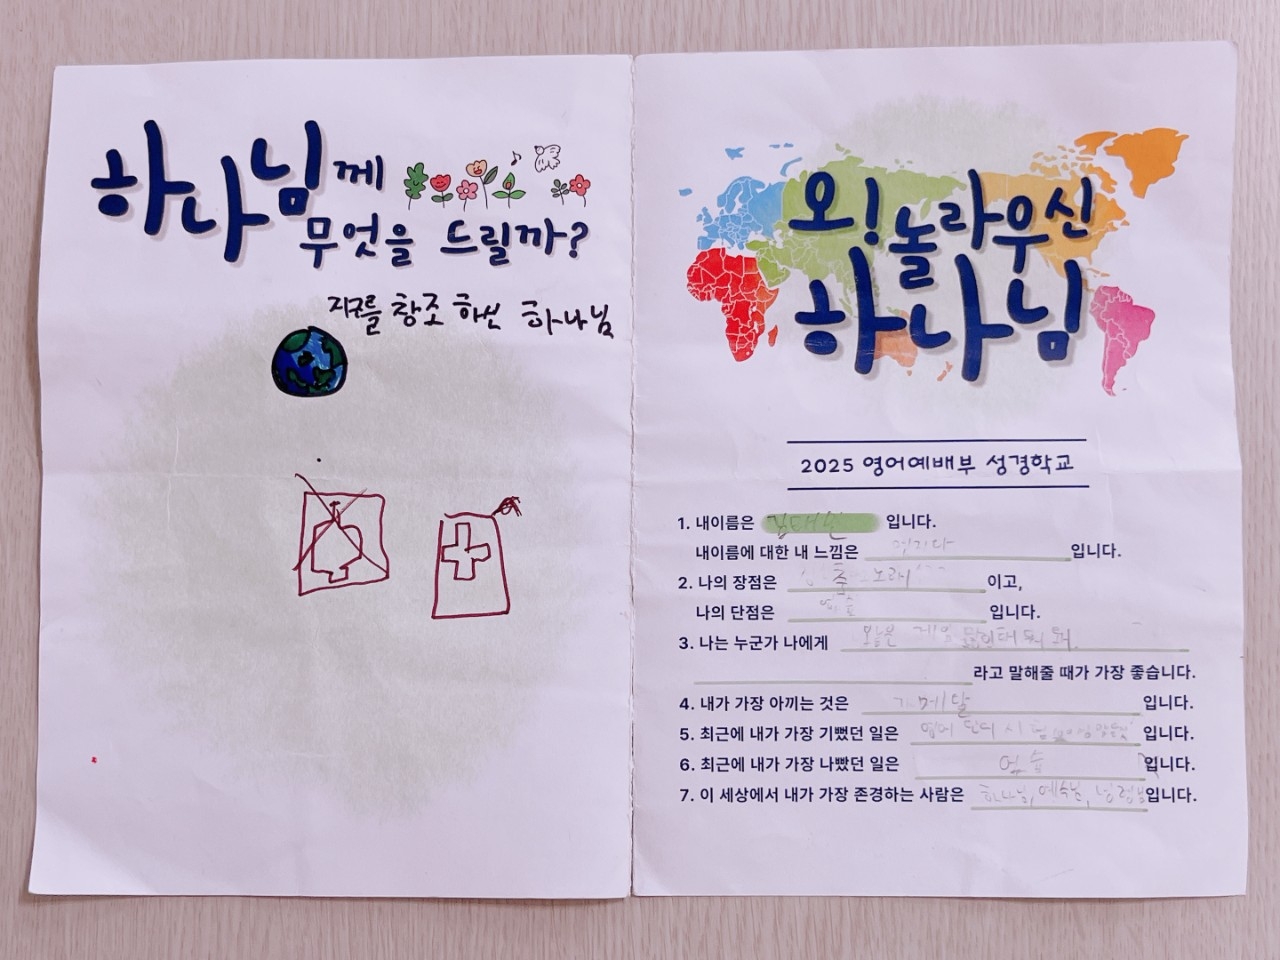 하나님께
무엇을 드릴까?
지구를 창조하신 하나님
오! 놀라우신
하나님
2025 영어예배부 성경학교
1. 내이름은 입니다.
내이름에 대한 내 느낌은 입니다.
2. 나의 장점은 춤 노래 이고,
나의 단점은 없음 입니다.
3. 나는 누군가 나에게 오늘은 게임
라고 말해줄 때가 가장 좋습니다.
4. 내가 가장 아끼는 것은 메달 입니다.
5. 최근에 내가 가장 기뻤던 일은 영어 단어 시험 입니다.
6. 최근에 내가 가장 나빴던 일은 없음 입니다.
7. 이 세상에서 내가 가장 존경하는 사람은 하나님, 예수님, 성령님 입니다.